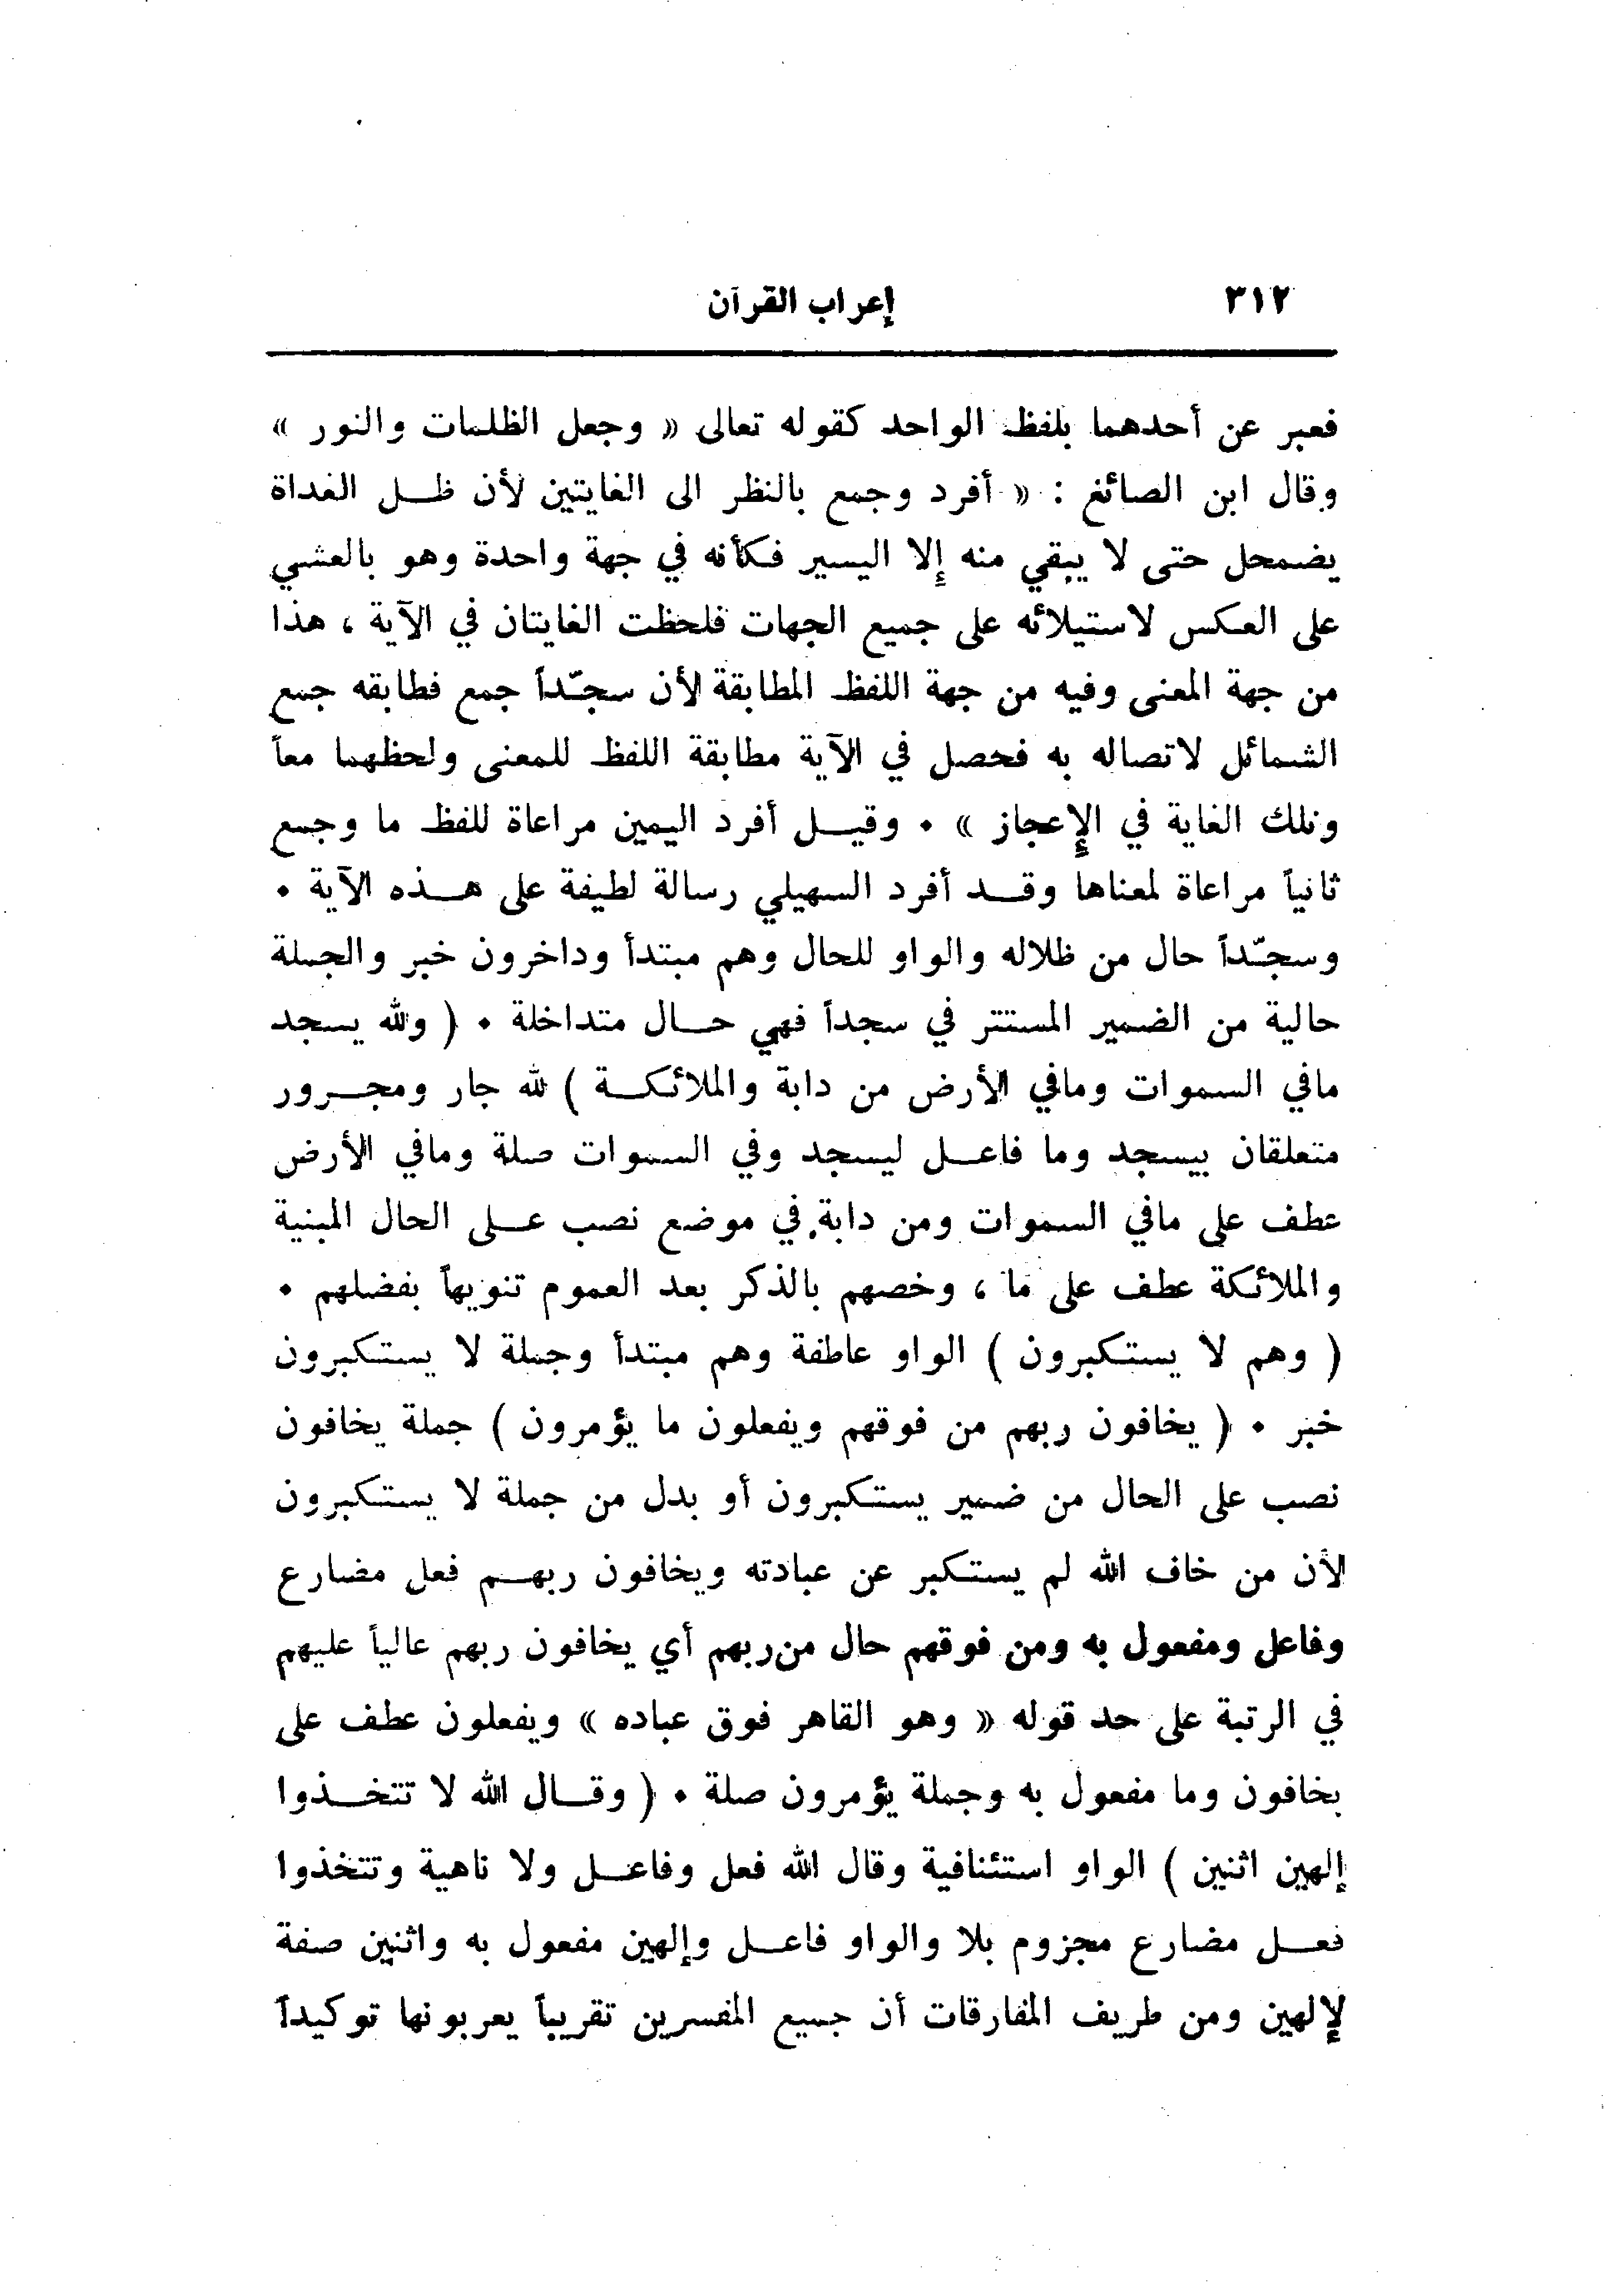 ٣١٢ إعراب القرآن
فعبر عن أحدهما بلفظ الواحد كقوله تعالى « وجعل الظلمات والنور »
وقال ابن الصائغ : « أفرد وجمع بالنظر الى الغايتين لأن ظل الغداة
يضمحل حتى لا يبقي منه إلا اليسير فكأنه في جهة واحدة وهو بالعشي
على العكس لاستيلائه على جميع الجهات فلحظت الغايتان في الآية ، هذا
من جهة المعنى وفيه من جهة اللفظ المطابقة لأن سجّداً جمع فطابقه جمع
الشمائل لاتصاله به فحصل في الآية مطابقة اللفظ للمعنى ولحظهما معاً
وتلك الغاية في الإعجاز » ٠ وقيل أفرد اليمين مراعاة للفظ ما وجمع
ثانياً مراعاة لمعناها وقد أفرد السهيلي رسالة لطيفة على هذه الآية ٠
وسجّداً حال من ظلاله والواو للحال وهم مبتدأ وداخرون خبر والجملة
حالية من الضمير المستتر في سجداً فهي حال متداخلة ٠ ( ولله يسجد
مافي السموات ومافي الأرض من دابة والملائكة ) لله جار ومجرور
متعلقان بيسجد وما فاعل ليسجد وفي السموات صلة ومافي الأرض
عطف على مافي السموات ومن دابة في موضع نصب على الحال المبنية
والملائكة عطف على ما ، وخصهم بالذكر بعد العموم تنويهاً بفضلهم ٠
( وهم لا يستكبرون ) الواو عاطفة وهم مبتدأ وجملة لا يستكبرون
خبر ٠ ( يخافون ربهم من فوقهم ويفعلون ما يؤمرون ) جملة يخافون
نصب على الحال من ضمير يستكبرون أو بدل من جملة لا يستكبرون
لأن من خاف الله لم يستكبر عن عبادته ويخافون ربهم فعل مضارع
وفاعل ومفعول به ومن فوقهم حال من ربهم أي يخافون ربهم عالياً عليهم
في الرتبة على حد قوله « وهو القاهر فوق عباده » ويفعلون عطف على
يخافون وما مفعول به وجملة يؤمرون صلة ٠ ( وقال الله لا تتخذوا
إلهين اثنين ) الواو استئنافية وقال الله فعل وفاعل ولا ناهية وتتخذوا
فعل مضارع مجزوم بلا والواو فاعل وإلهين مفعول به واثنين صفة
لإلهين ومن طريف المفارقات أن جميع المفسرين تقريباً يعربونها توكيداً